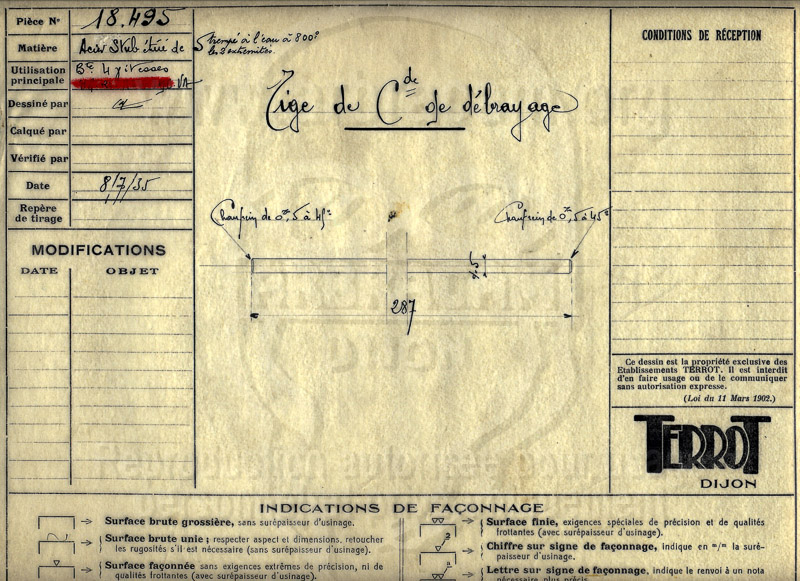 Pièce N° 18.495
Matière Acier Stub étiré de 5 trempé à l'eau à 800°
les 2 extremités
Utilisation principale Bte 4 vitesses
Dessiné par
Calqué par
Vérifié par
Date 8/7/35
Repère de tirage
MODIFICATIONS
DATE OBJET
Tige de Cde de débrayage
Chanfrein de 0,5 à 45°
Chanfrein de 0,5 à 45°
287
CONDITIONS DE RÉCEPTION
Ce dessin est la propriété exclusive des
Etablissements TERROT. Il est interdit
d'en faire usage ou de le communiquer
sans autorisation expresse.
(Loi du 11 Mars 1902.)
TERROT
DIJON
INDICATIONS DE FAÇONNAGE
Surface brute grossière, sans surépaisseur d'usinage.
Surface brute unie; respecter aspect et dimensions, retoucher
les rugosités s'il est nécessaire (sans surépaisseur d'usinage).
Surface façonnée sans exigences extrêmes de précision, ni de
qualités frottantes (avec surépaisseur d'usinage).
Surface finie, exigences spéciales de précision et de qualités
frottantes (avec surépaisseur d'usinage).
Chiffre sur signe de façonnage, indique en m/m la suré-
paisseur d'usinage.
Lettre sur signe de façonnage, indique le renvoi à un nota
nécessaire plus précis.